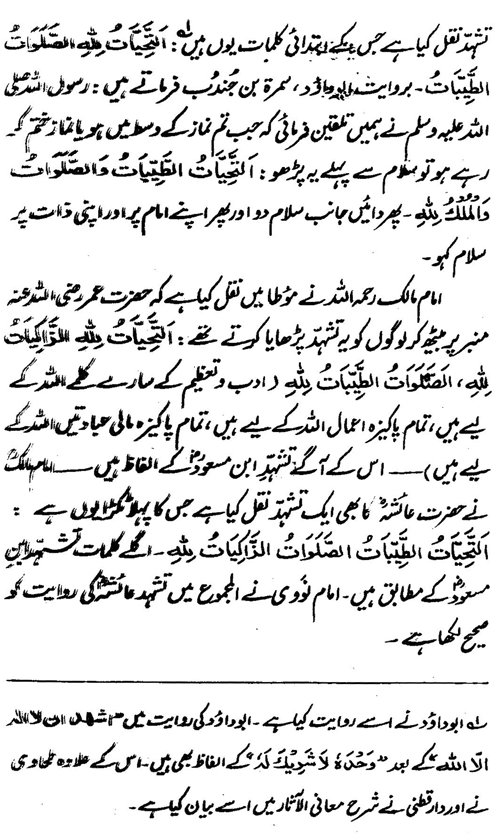 تشہد نقل کیا ہے جس کے ابتدائی کلمات یوں ہیں لہ: اَلتَّحِیَّاتُ لِلّٰہِ الصَّلَوَاتُ
الطَّیِّبَاتُ۔ بروایت ابوداؤد، سمرۃ بن جُندُب فرماتے ہیں: رسول اللہ صلی
اللہ علیہ وسلم نے ہمیں تلقین فرمائی کہ جب تم نماز کے وسط میں ہو یا نماز ختم کر
رہے ہو تو سلام سے پہلے یہ پڑھو: اَلتَّحِیَّاتُ الطَّیِّبَاتُ وَالصَّلَوَاتُ
وَالْمُلْکُ لِلّٰہِ۔ پھر دائیں جانب سلام دو اور پھر اپنے امام پر اور اپنی ذات پر
سلام کہو۔
امام مالک رحمہ اللہ نے مؤطا میں نقل کیا ہے کہ حضرت عمر رضی اللہ عنہ
منبر پر بیٹھ کر لوگوں کو یہ تشہد پڑھایا کرتے تھے: اَلتَّحِیَّاتُ لِلّٰہِ الزَّاکِیَاتُ
لِلّٰہِ، اَلصَّلَوَاتُ الطَّیِّبَاتُ لِلّٰہِ (ادب و تعظیم کے سارے کلمے اللہ کے
لیے ہیں، تمام پاکیزہ اعمال اللہ کے لیے ہیں، تمام پاکیزہ مالی عبادتیں اللہ کے
لیے ہیں) —— اس کے آگے تشہدِ ابن مسعودؓ کے الفاظ ہیں —— امام مالکؒ
نے حضرت عائشہؓ کا بھی ایک تشہد نقل کیا ہے جس کا پہلا ٹکڑا یوں ہے :
اَلتَّحِیَّاتُ الطَّیِّبَاتُ الصَّلَوَاتُ الزَّاکِیَاتُ لِلّٰہِ۔ اگلے کلمات تشہد ابن
مسعودؓ کے مطابق ہیں۔ امام نووی نے المجموع میں تشہد عائشہؓ کی روایت کو
صحیح لکھا ہے۔
لہ ابوداؤد نے اسے روایت کیا ہے۔ ابوداؤد کی روایت میں "اشھد ان لا الٰہ
الّا اللہ" کے بعد "وَحْدَہٗ لَا شَرِیْکَ لَہٗ" کے الفاظ بھی ہیں۔ اس کے علاوہ طحاوی
نے اور دارقطنی نے شرح معانی الآثار میں اسے بیان کیا ہے۔